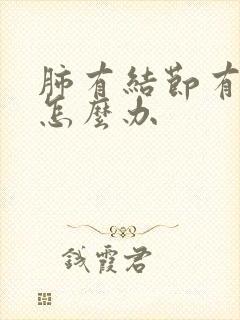 肺有結節有
怎麼办
钱霞君